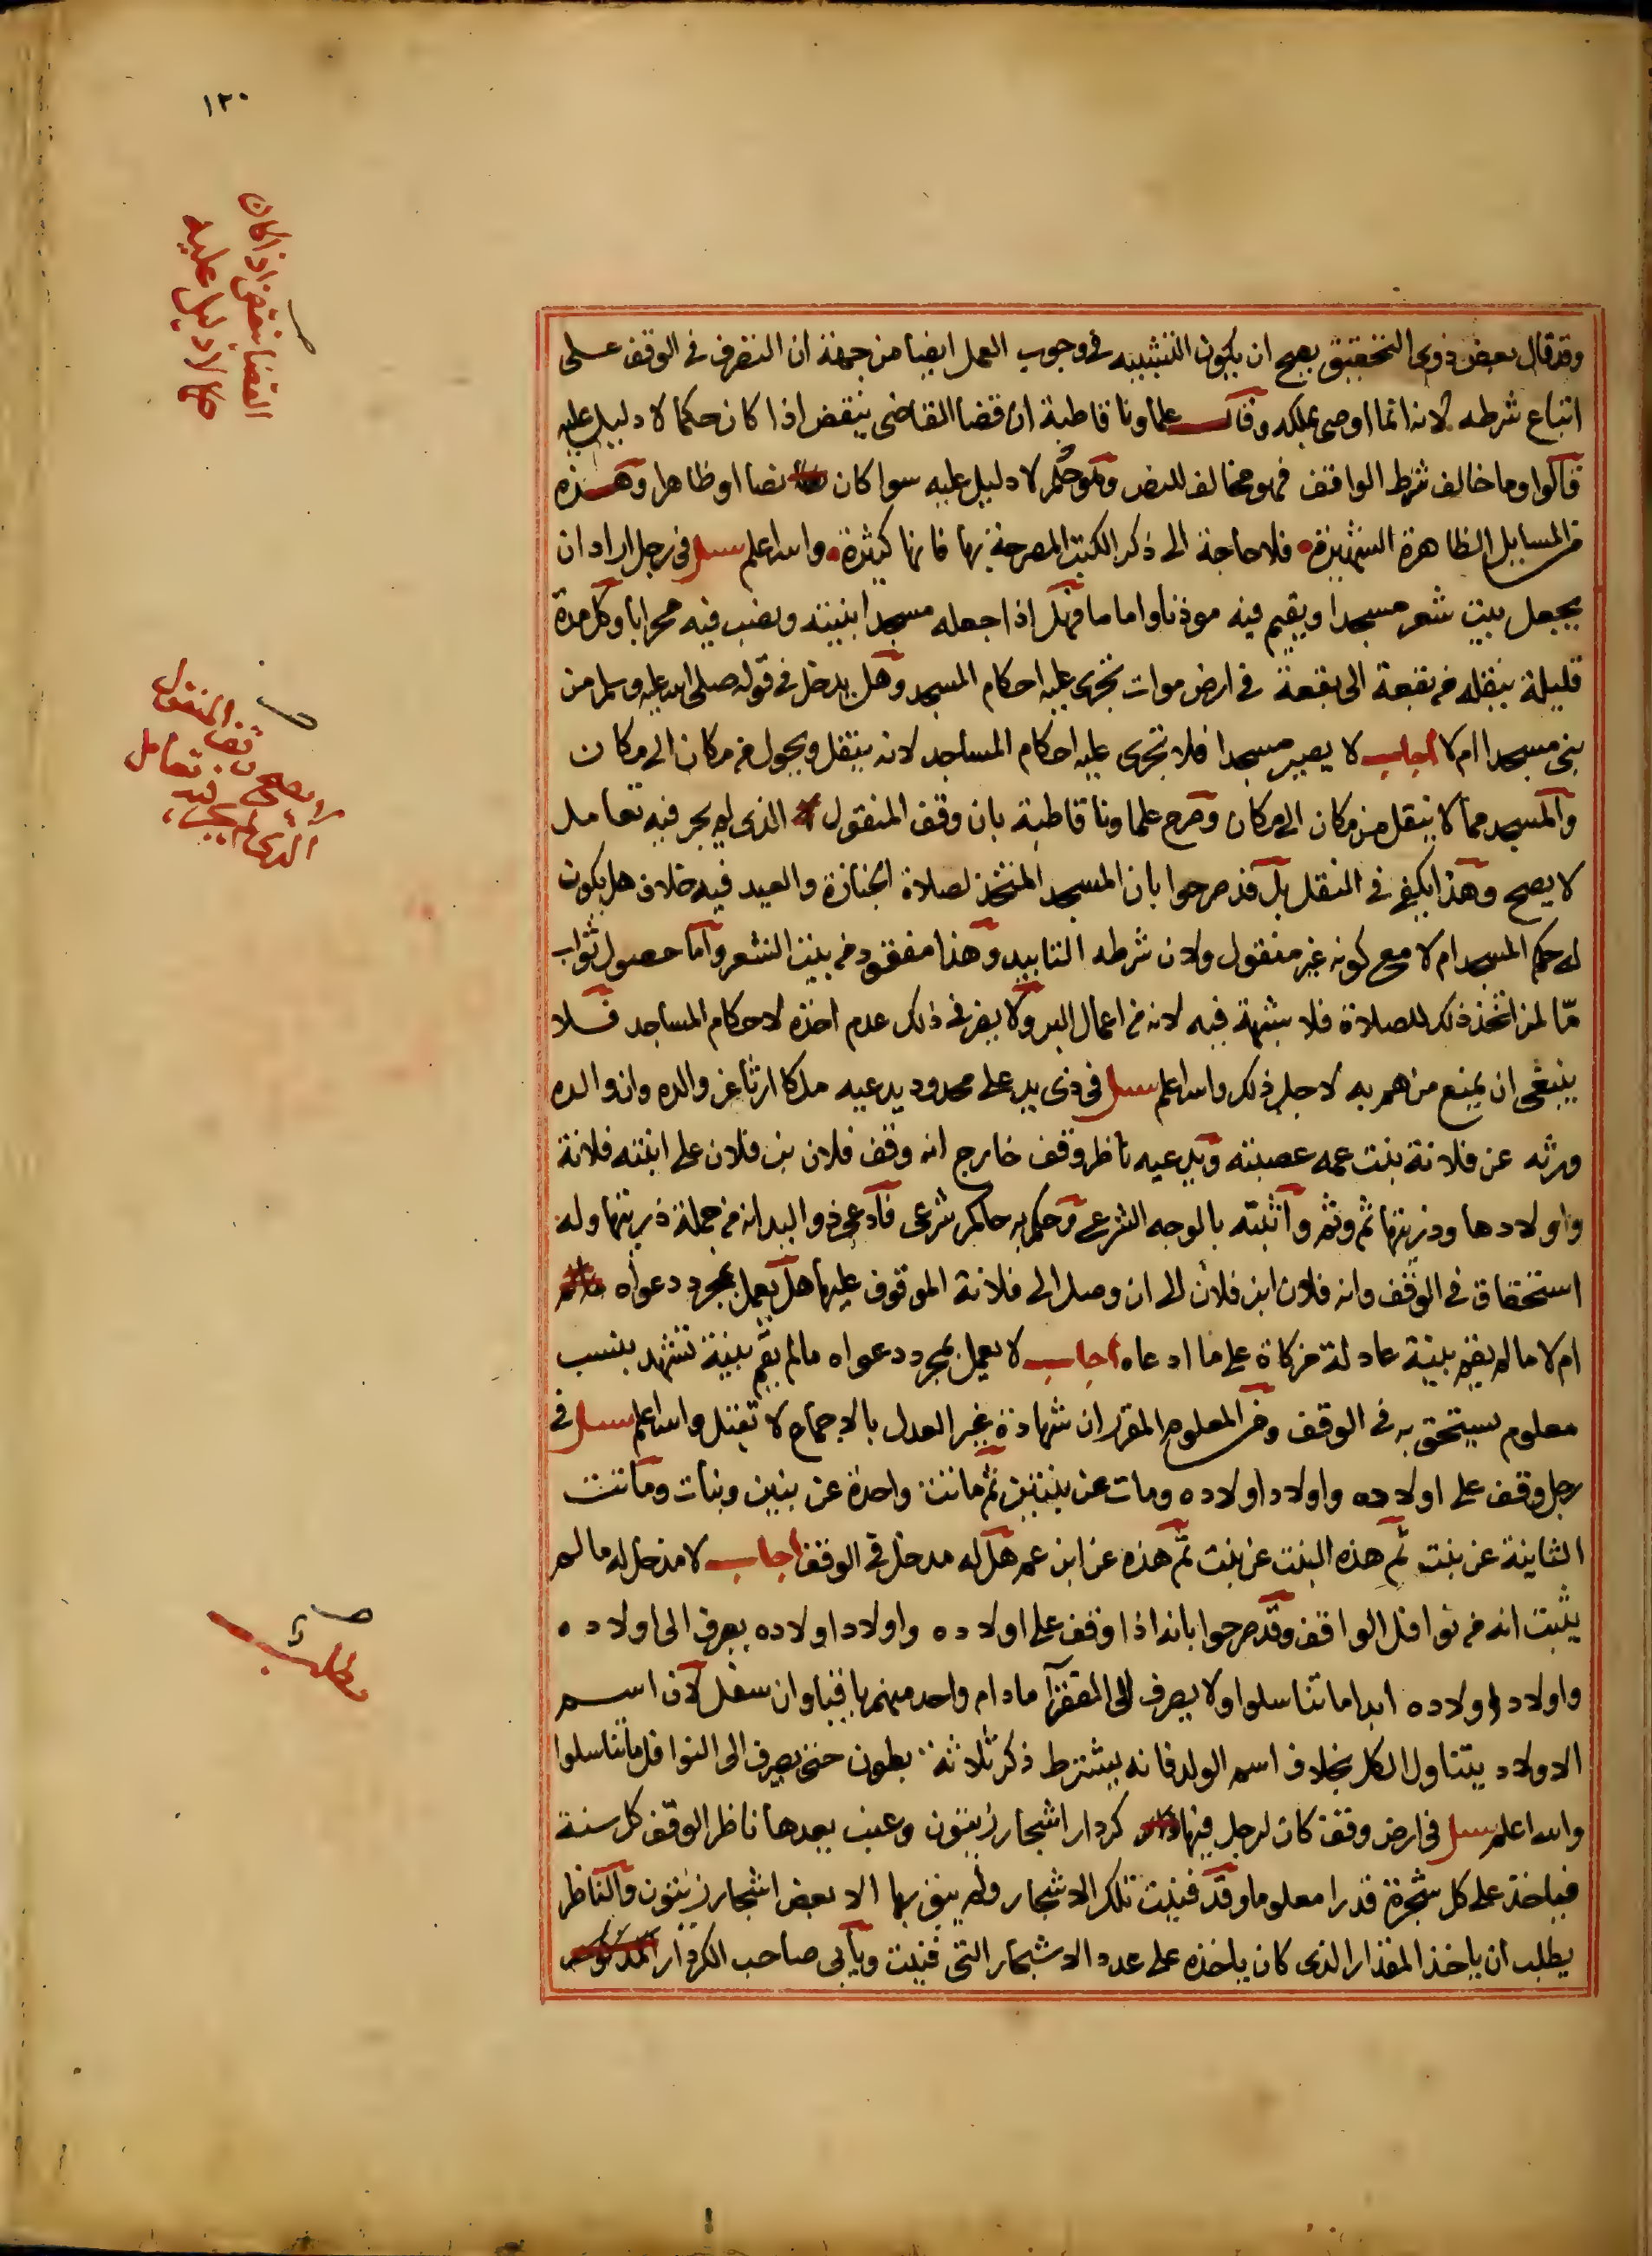 ١٢٠
القضا ينقض اذا كان
حكما لا دليل عليه
وقد قال بعض ذوى التحقيق يصح ان يكون التشبيه فى وجوب العمل ايضا من جهة ان التصرف فى الوقف على
اتباع شرطه لانه انما اوصى بملكه وقال علماونا قاطبة ان قضا القاضى ينقض اذا كان حكما لا دليل عليه
قالوا وما خالف شرط الواقف فهو مخالف للنص وهو حكم لا دليل عليه سوا كان نصا او ظاهرا وهذه
من المسايل الظاهرة الشهيرة فلا حاجة الى ذكر الكتب المصرحة بها فانها كثيرة والله اعلم سيل فى رجل اراد ان
يجعل بيت شعر مسجدا ويقيم فيه موذنا واماما فهل اذا جعله مسجدا بنيته ونصب فيه محرابا وكل مدة
قليلة ينقله من بقعة الى بقعة فى ارض موات تجرى عليه احكام المسجد وهل يدخل فى قوله صلى الله عليه وسلم من
بنى مسجدا ام لا اجاب لا يصير مسجدا فلا تجرى عليه احكام المساجد لانه ينقل ويحول من مكان الى مكان
والمسجد مما لا ينقل من مكان الى مكان وصرح علماونا قاطبة بان وقف المنقول الذى لم يجر فيه تعامل
لا يصح وهذا يكفى فى النقل بل قد صرحوا بان المسجد المتخذ لصلاة الجنازة والعيد فيه خلاف هل يكون
له حكم المسجد ام لا مع كونه غير منقول ولان شرطه التابيد وهذا مفقود من بيت الشعر واما حصول ثواب
ما لمن اتخذ ذلك للصلاة فلا شبهة فيه لانه من اعمال البر ولا يضر فى ذلك عدم اخذه لاحكام المساجد فلا
ينبغى ان يمنع من هم به لاجل ذلك والله اعلم سيل فى ذى يد على محدود يدعيه ملكا ارثا عن والده وان والده
ورثه عن فلانة بنت عمه عصبته ويدعيه ناظر وقف خارج انه وقف فلان بن فلان على ابنته فلانة
واولادها وذريتها ثم وثم واثبته بالوجه الشرعى وحكم به حاكم شرعى فادعى ذو اليد انه من جملة ذريتها وله
استحقاق فى الوقف وانه فلان ابن فلان الى ان وصل الى فلانة الموقوف عليها هل يعمل بمجرد دعواه
ام لا ما لم يقم بينة عادلة مزكاة على ما ادعاه اجاب لا يعمل بمجرد دعواه مالم يقم بينة تشهد بنسب
معلوم يستحق به فى الوقف ومن المعلوم المقرر ان شهادة غير العدل بالاجماع لا تقبل والله اعلم سيل فى
رجل وقف على اولاده واولاد اولاده ومات عن بنتين ثم ماتت واحدة عن بنين وبنات وماتت
الثانية عن بنت ثم هذه البنت عن بنت ثم هذه عن ابن عم هل له مدخل فى الوقف اجاب لا مدخل له مالم
يثبت انه من نوافل الواقف وقد صرحوا بانه اذا وقف على اولاده واولاد اولاده يصرف الى اولاده
واولاد اولاده ابدا ما تناسلوا ولا يصرف الى الفقرآ ما دام واحد منهم باقيا وان سفل لان اسم
الاولاد يتناول الكل بخلاف اسم الولد فانه يشترط ذكر ثلاثة بطون حتى يصرف الى النوافل ما تناسلوا
والله اعلم سيل فى ارض وقف كان لرجل فيها كردار اشجار زيتون وعنب يعدها ناظر الوقف كل سنة
فياخذ على كل شجرة قدرا معلوما وقد فنيت تلك الاشجار ولم يبق بها الا بعض اشجار زيتون والناظر
يطلب ان ياخذ المقدار الذى كان ياخذه على عدد الاشجار التى فنيت ويابى صاحب الكردار المذكور
لا يصح وقف المنقول
الذى لم يجر فيه تعامل
مطلب